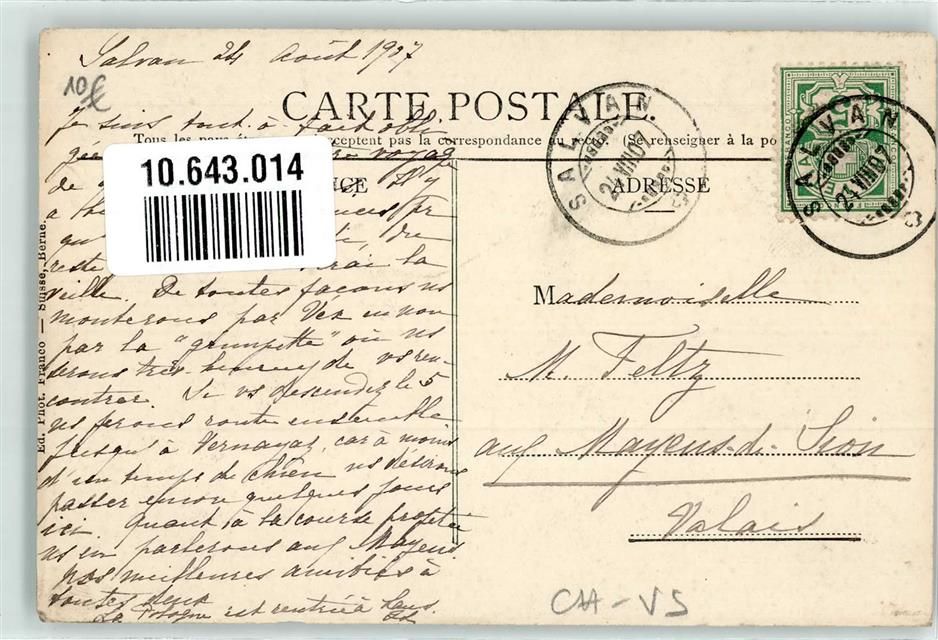 Salvan 24 Août 1907
10€
CARTE POSTALE.
Je suis tout à fait obli
Tous les pays ét ceptent pas la correspondance au recto. Se renseigner à la po
gée voyage
10.643.014
de NCE
ADRESSE
SALVAN
24 VIII 07
SALVAN
24 VIII 07
FRANCO
a
qu' te, du
reste rai la
veille. De toutes façons ns
monterons par Vex et non
par la "grimpette" où ns
serons très heureux de vs ren-
contrer. Si vs descendez le 5
ns ferons route ensemble
jusqu'à Vernayaz, car à moins
d'un temps de chien ns désirons
passer encore quelques jours
ici. Quant à la course
ns en parlerons aux Mayens
Nos meilleures amitiés à
toutes deux
La est rentrée à Laus.
Mademoiselle
M. Feltz
aux Mayens-de-Sion
Valais
Ed. Phot. Franco — Suisse, Berne.
CHA-VS